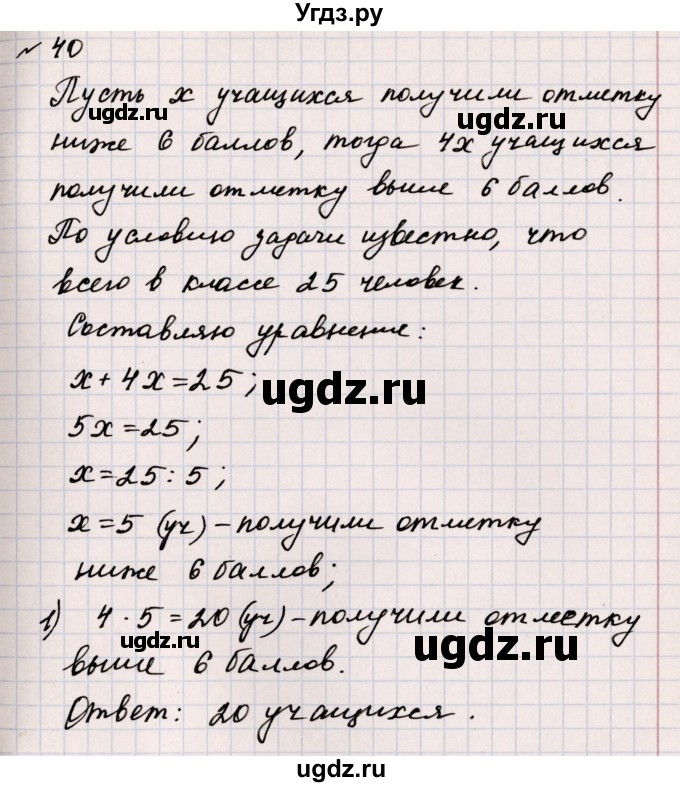 Угдз.ру
№ 40
Пусть x учащихся получили отметку
ugdz.ru
ugdz.ru
ниже 6 баллов, тогда 4x учащихся
получили отметку выше 6 баллов.
По условию задачи известно, что
всего в классе 25 человек.
Составляю уравнение:
x + 4x = 25;
ugdz.ru
5x = 25;
x = 25 : 5;
x = 5 (уч) – получили отметку
ниже 6 баллов;
1) 4 · 5 = 20 (уч) – получили отметку
ugdz.ru
ugdz.ru
выше 6 баллов.
Ответ: 20 учащихся.
ugdz.ru
ugdz.ru